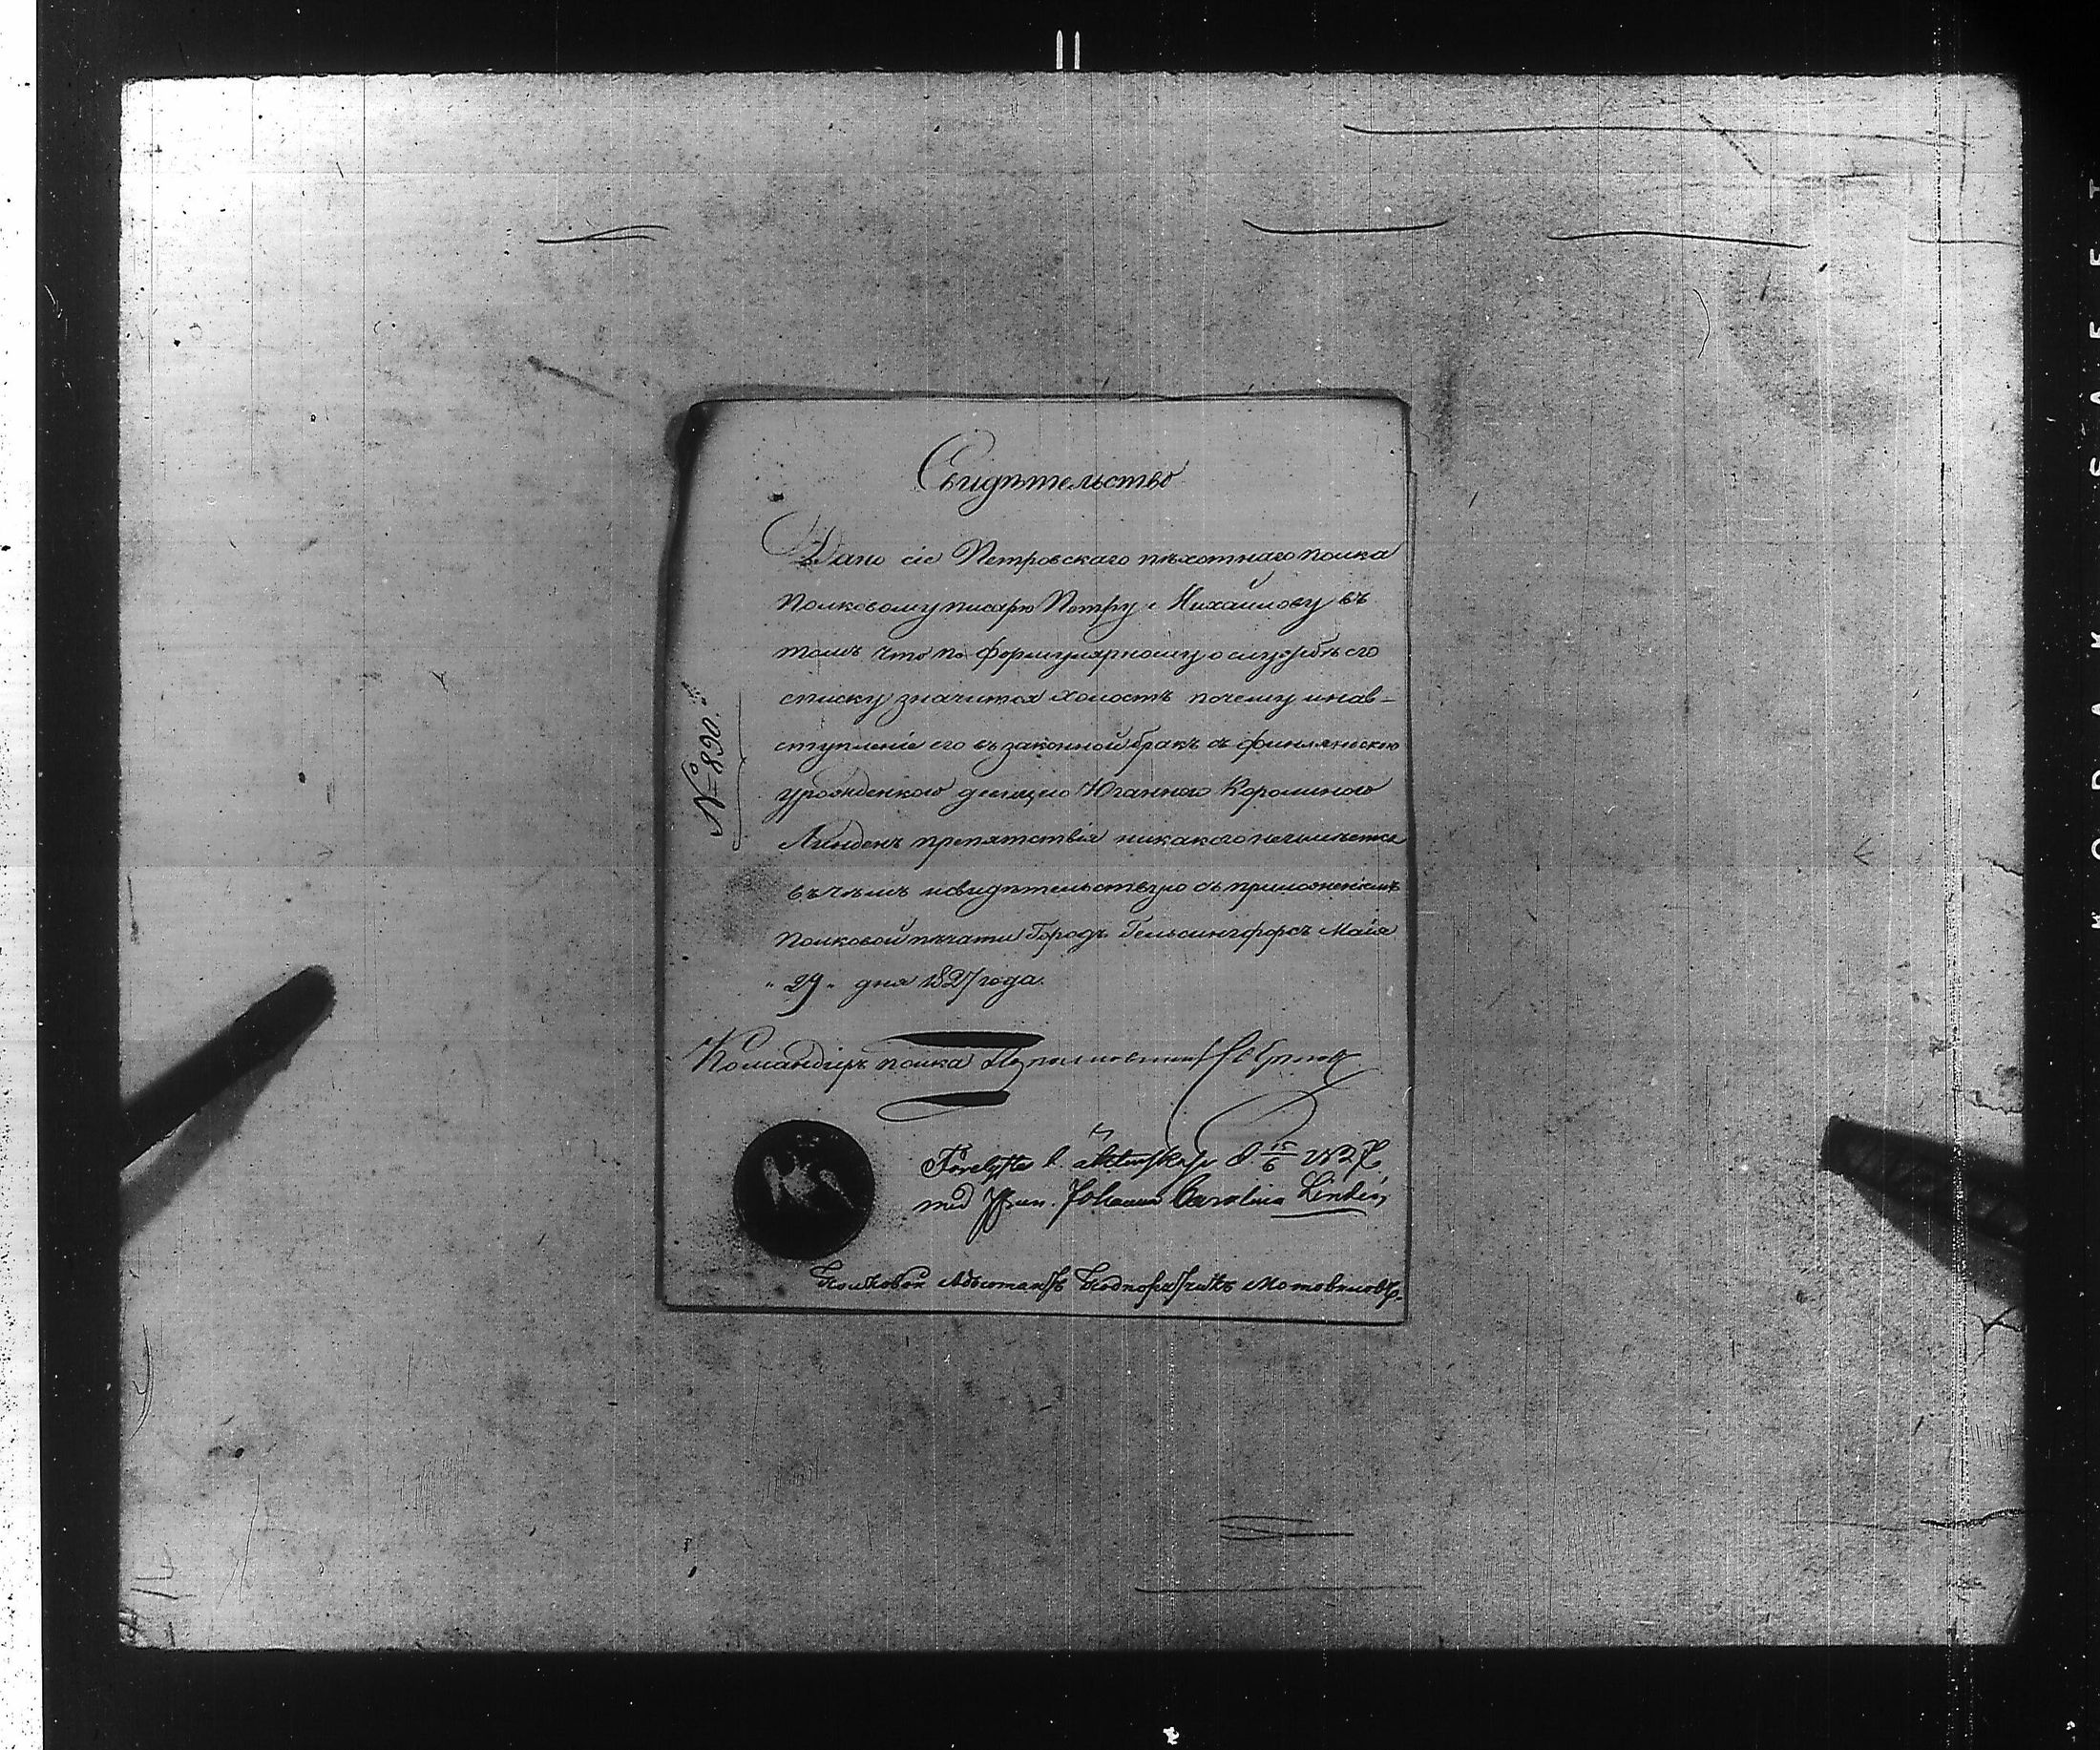 Свидѣтельство
Дано сіе Петровскаго пѣхотнаго полка
полковому писарю Петру Михайлову въ
томъ что по формулярному о службѣ его
списку значится холостъ почему и на в-
ступленіе его въ законной бракъ съ финлянскою
урожденкою девицею Юганною Каролиною
Линденъ препятствія никакого неимѣется
въ чѣмъ и свидѣтельствую съ приложеніемъ
полковой печати Городъ Гельсингфорсъ Маія
"27" дня 1827 года.
№ 890.
Командиръ полка Подполковникъ
d. 15/6 1827
med Johanna Carolina Lindén,
Полковой Адъютантъ Подпоручикъ Мотовиловъ